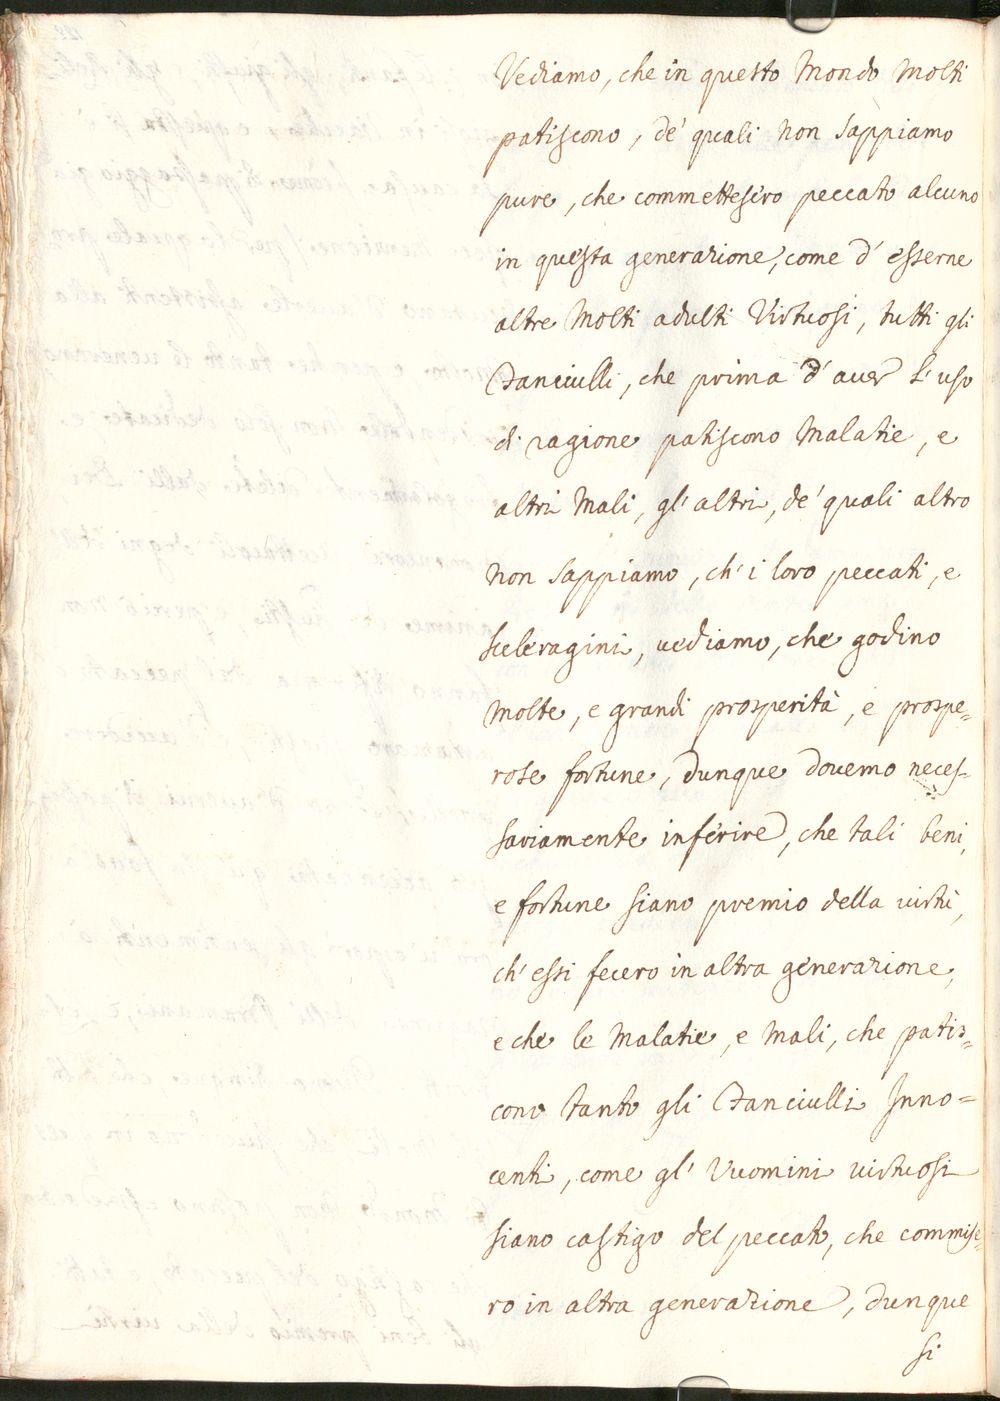 Vediamo, che in questo Mondo Molti
patiscono, de' quali non sappiamo
pure, che commettesero peccato alcuno
in questa generazione, come d' esserne
altre Molti adulti Virtuosi, tutti gli
Fanciulli, che prima d' aver l' uso
di ragione patiscono Malatie, e
altri Mali, gl' altri, de' quali altro
non sappiamo, ch' i loro peccati, e
sceleragini, vediamo, che godino
Molte, e grandi prosperità, e prospe=
rose fortune, dunque dovemo neces=
sariamente inferire, che tali beni,
e fortune siano premio della virtù,
ch' essi fecero in altra generazione,
e che le Malatie, e Mali, che patis=
cono tanto gli Fanciulli Inno=
centi, come gl' Vuomini virtuosi
siano castigo del peccato, che commise=
ro in altra generazione, dunque
si